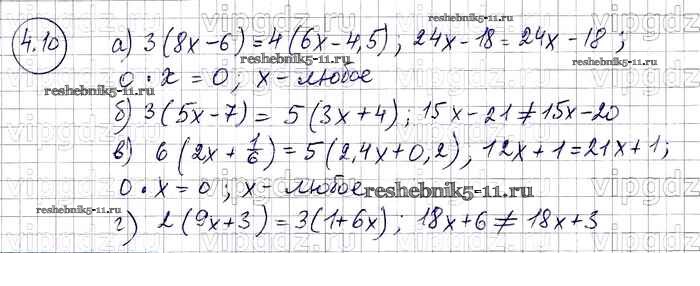 4.10 а) 3(8x-6)=4(6x-4,5); 24x-18=24x-18;
0·x=0; x-любое
б) 3(5x-7)=5(3x+4); 15x-21≠15x-20
в) 6(2x+1/6)=5(2,4x+0,2), 12x+1=21x+1;
0·x=0; x-любое
г) 2(9x+3)=3(1+6x); 18x+6≠18x+3
reshebnik5-11.ru
reshebnik5-11.ru
reshebnik5-11.ru
reshebnik5-11.ru
reshebnik5-11.ru
reshebnik5-11.ru
reshebnik5-11.ru
vipgdz